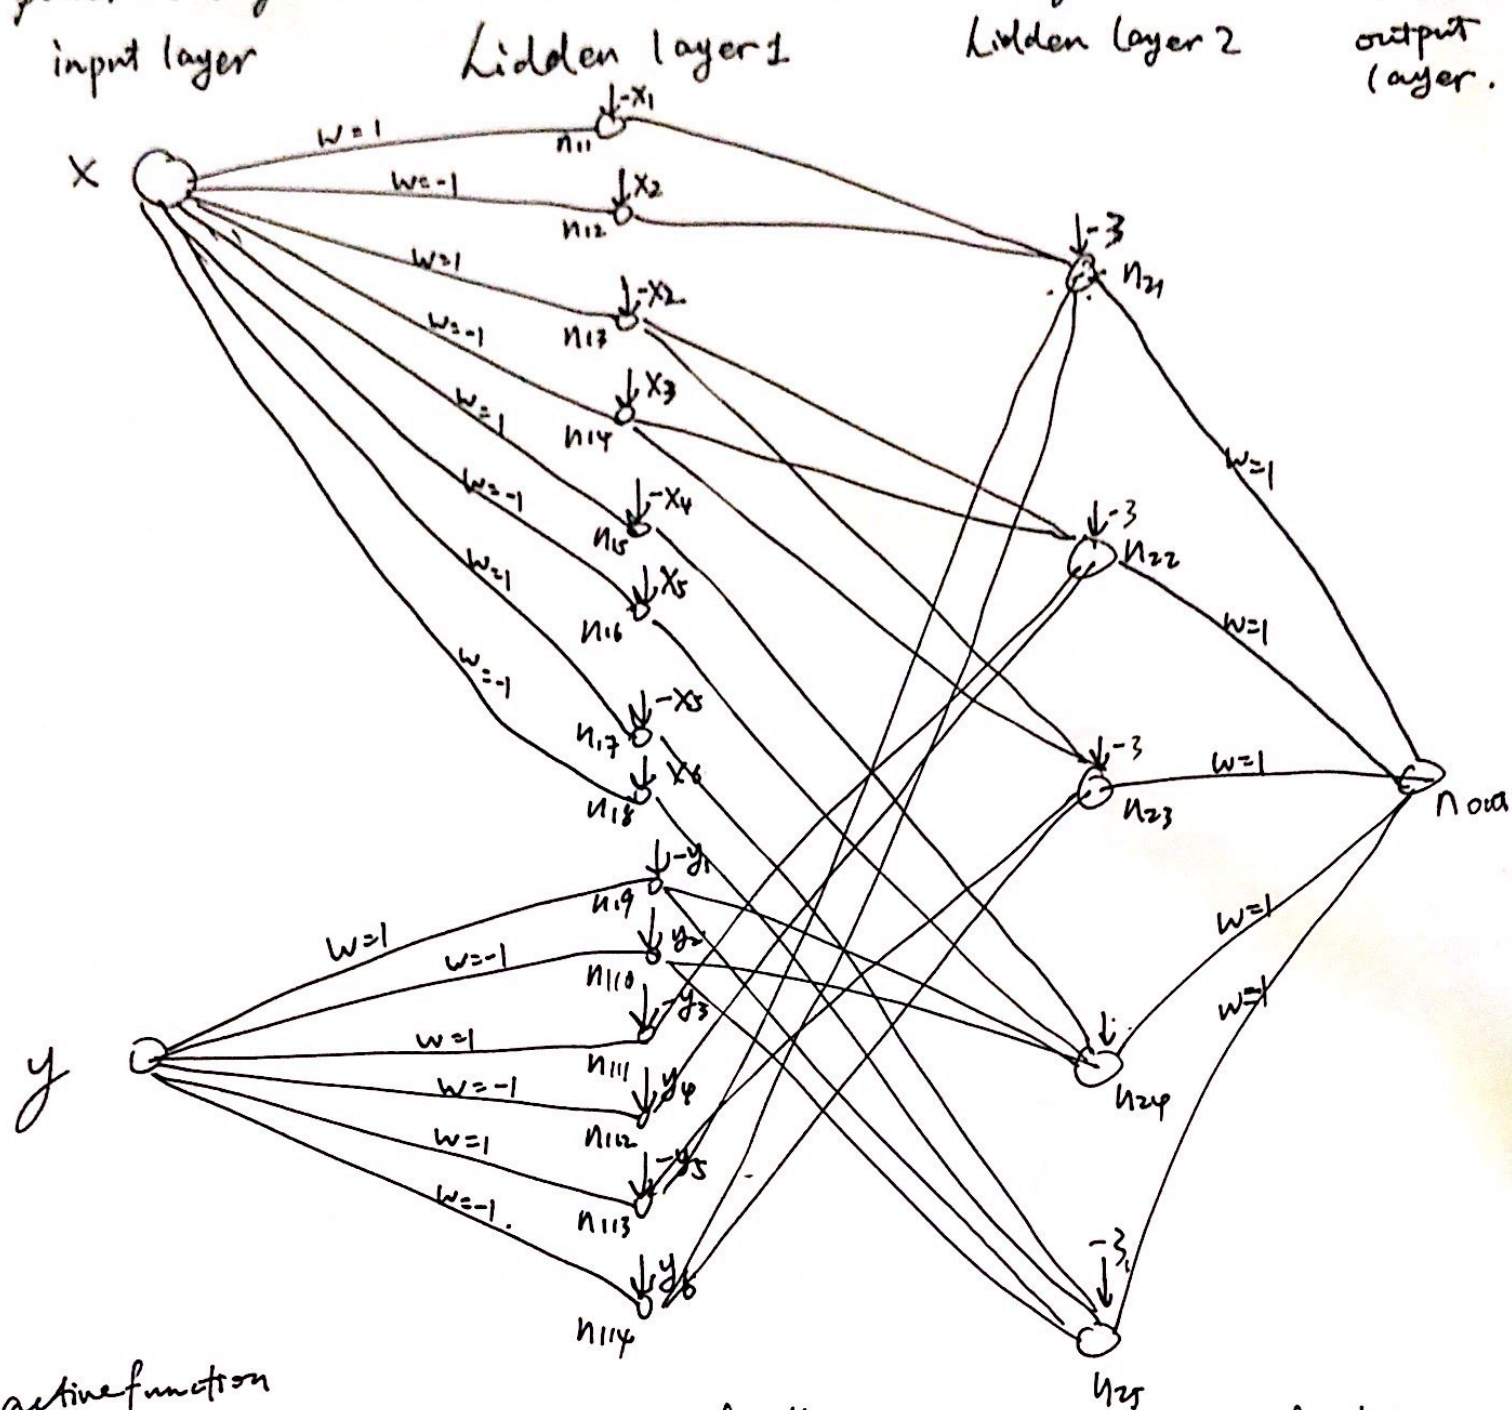 input layer
hidden layer 1
hidden layer 2
output
layer.
x
w=1
w=-1
w=1
w=-1
w=1
w=-1
w=1
w=-1
-x1
n11
x2
n12
-x2
n13
x3
n14
-x4
n15
x5
n16
-x5
n17
x6
n18
y
w=1
w=-1
w=1
w=-1
w=1
w=-1
-y1
n19
y2
n110
-y3
n111
y4
n112
-y5
n113
y6
n114
-3
n21
-3
n22
-3
n23
n24
-3
n25
w=1
w=1
w=1
w=1
w=1
nout
active function